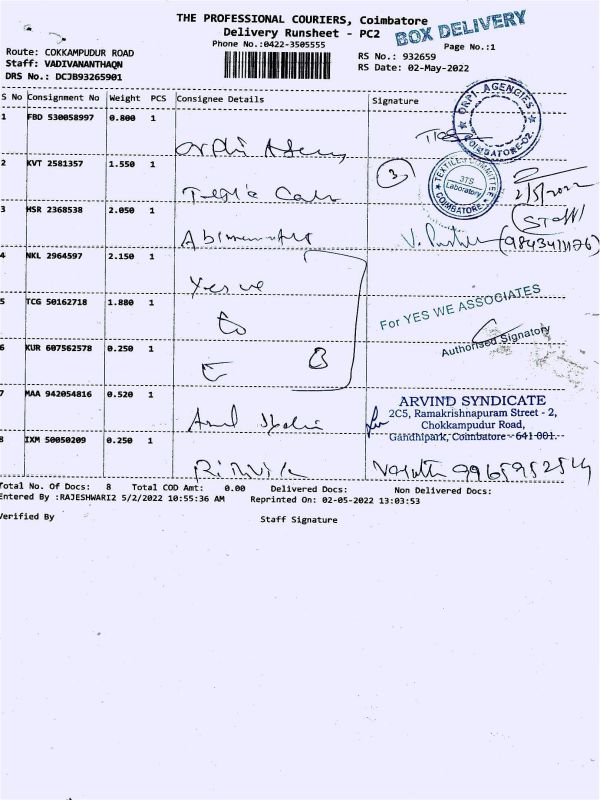 THE PROFESSIONAL COURIERS, Coimbatore
Delivery Runsheet - PC2
BOX DELIVERY
Phone No.:0422-3505555
Page No.:1
Route: COKKAMPUDUR ROAD
Staff: VADIVANANTHAQN
DRS No.: DCJB93265901
RS No.: 932659
RS Date: 02-May-2022
S No Consignment No Weight PCS Consignee Details Signature
1 FBD 530058997 0.800 1
ORPI AGENCIES
COIMBATORE-02
2 KVT 2581357 1.550 1
3
TEXTILES COMMITTEE
3TS
Laboratory
COIMBATORE
2/5/2022
(Staff)
3 HSR 2368538 2.050 1
4 NKL 2964597 2.150 1 Yes we
5 TCG 50162718 1.880 1
For YES WE ASSOCIATES
6 KUR 607562578 0.250 1 3
Authorised Signatory
7 MAA 942054816 0.520 1
ARVIND SYNDICATE
2C5, Ramakrishnapuram Street - 2,
Chokkampudur Road,
Gandhipark, Coimbatore - 641 001.
8 IXM 50050209 0.250 1
Total No. Of Docs: 8 Total COD Amt: 0.00 Delivered Docs: Non Delivered Docs:
Entered By :RAJESHWARI2 5/2/2022 10:55:36 AM Reprinted On: 02-05-2022 13:03:53
Verified By Staff Signature